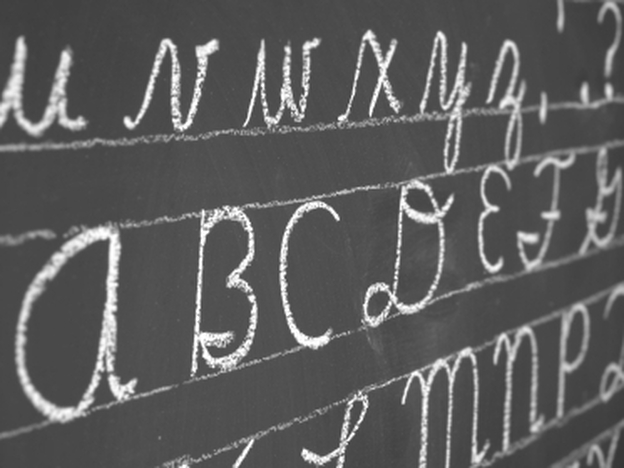 u v w x y z . : ?
A B C D E F G
L M N P